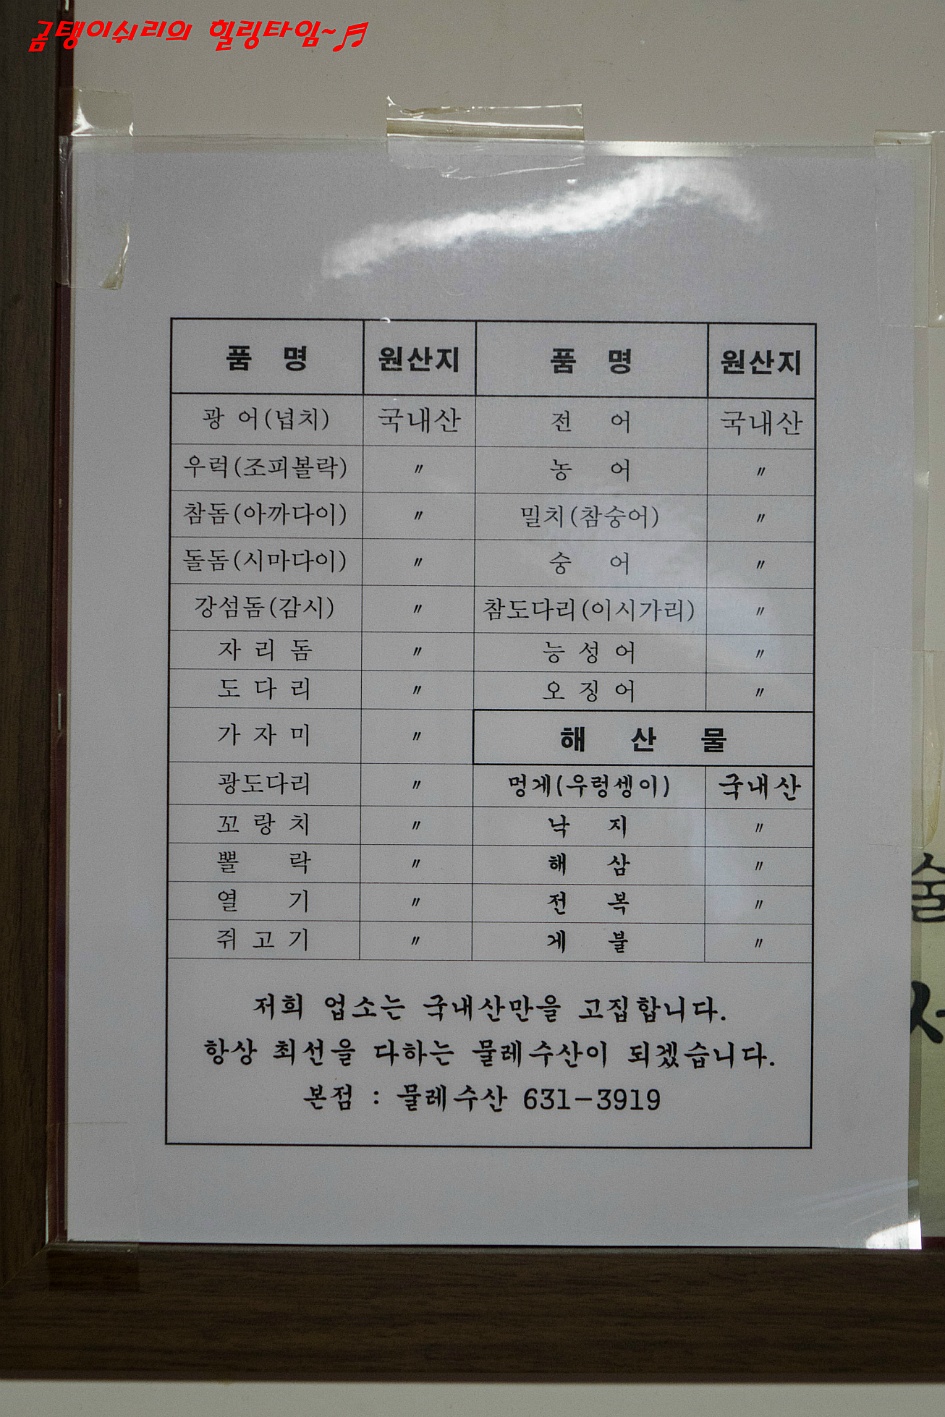 곰탱이쉬리의 힐링타임~♬
품 명 원산지 품 명 원산지
광 어(넙치) 국내산 전 어 국내산
우럭(조피볼락) 〃 농 어 〃
참돔(아까다이) 〃 밀치(참숭어) 〃
돌돔(시마다이) 〃 숭 어 〃
강섬돔(감시) 〃 참도다리(이시가리) 〃
자 리 돔 〃 능 성 어 〃
도 다 리 〃 오 징 어 〃
가 자 미 〃 해 산 물
광도다리 〃 멍게(우렁셍이) 국내산
꼬 랑 치 〃 낙 지 〃
뽈 락 〃 해 삼 〃
열 기 〃 전 복 〃
쥐 고 기 〃 게 불 〃
저희 업소는 국내산만을 고집합니다.
항상 최선을 다하는 물레수산이 되겠습니다.
본점 : 물레수산 631-3919
술